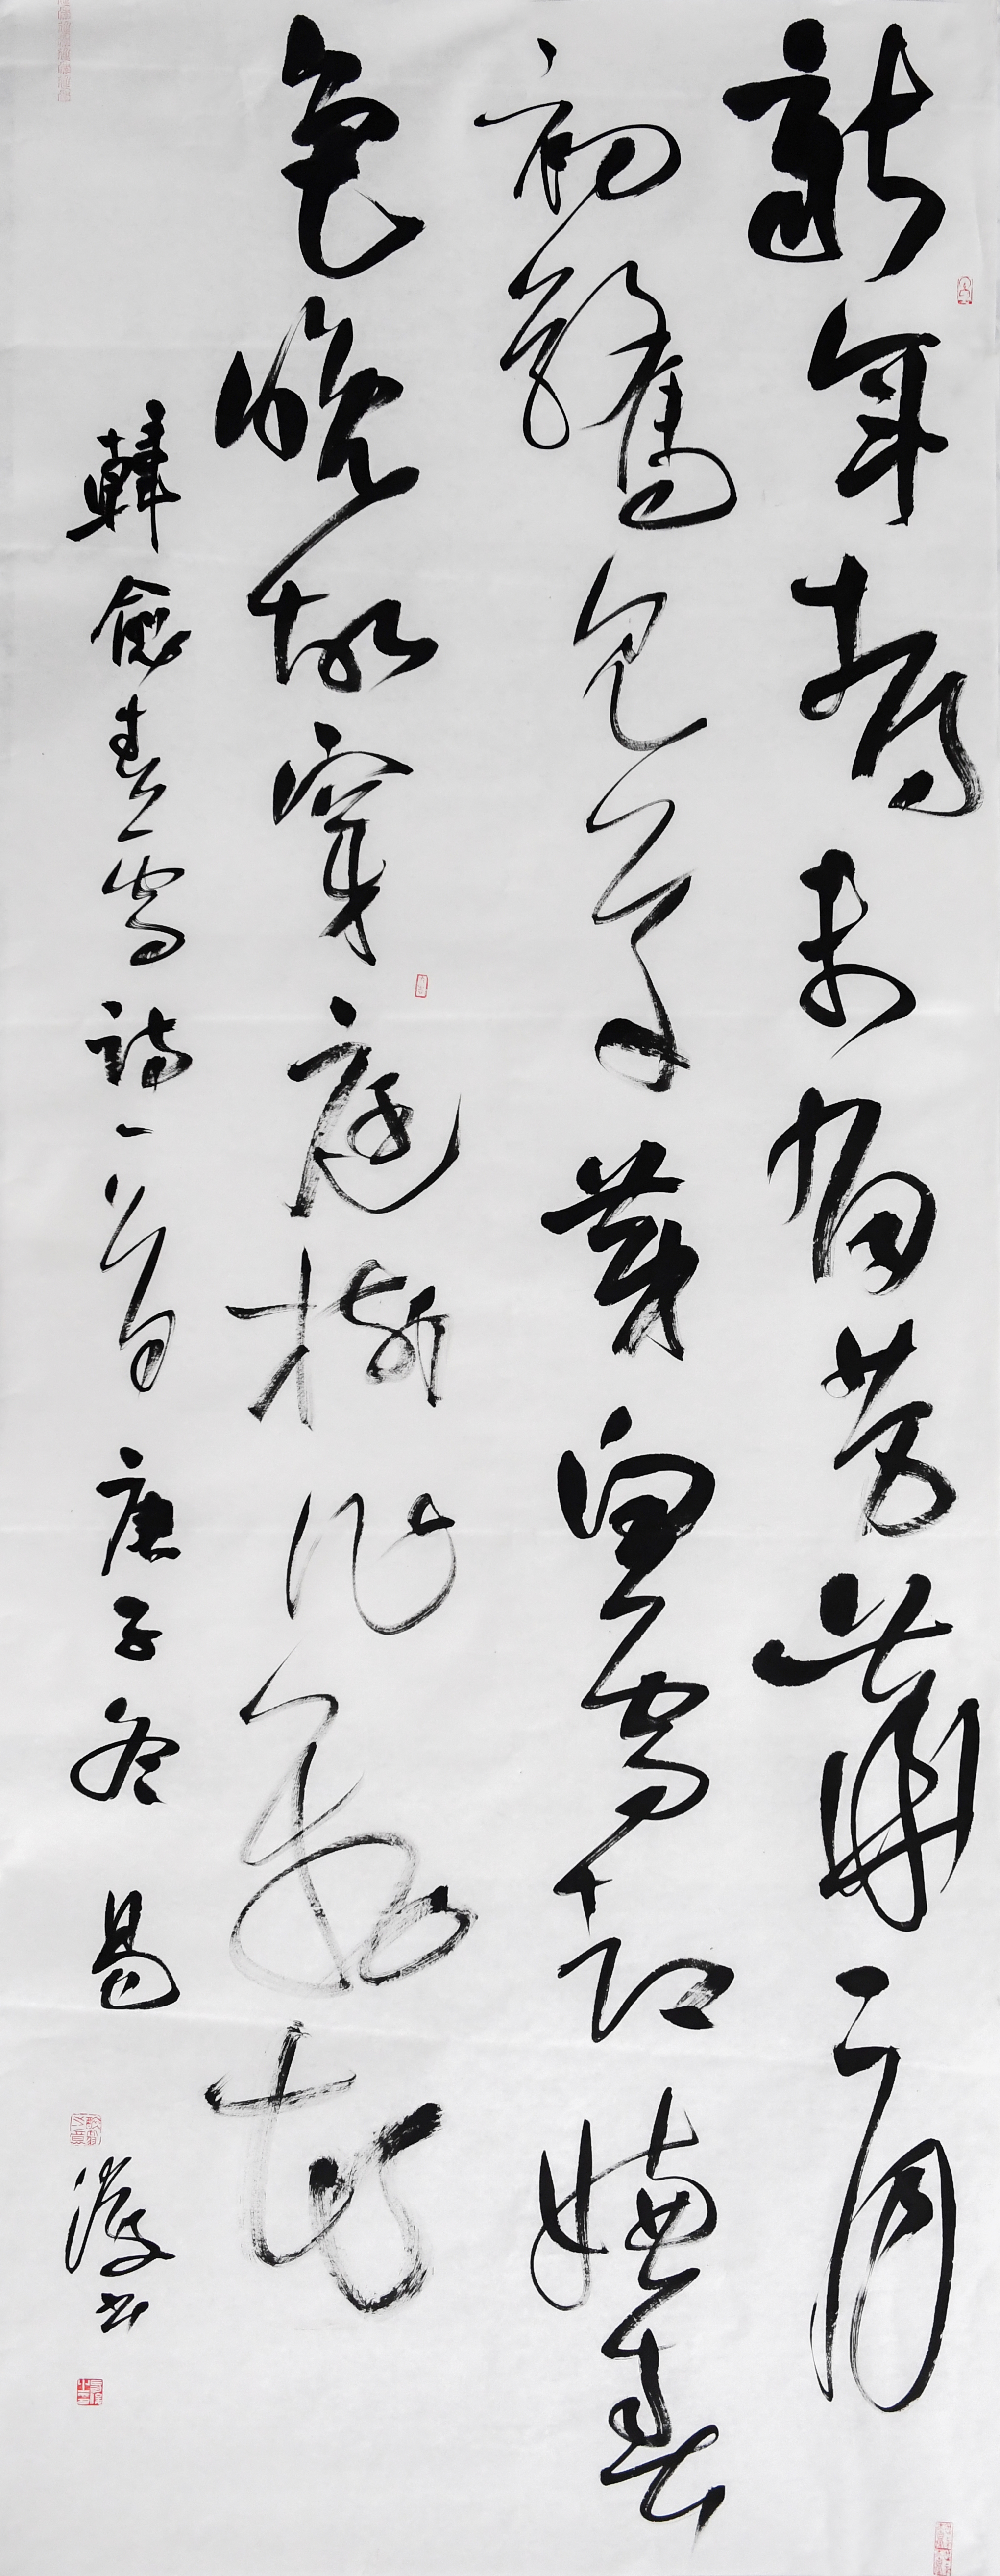 新年都未有芳華二月
初驚見草芽白雪却嫌春
色晚故穿庭樹作飛花
韓愈春雪詩一首 庚子冬 易 书